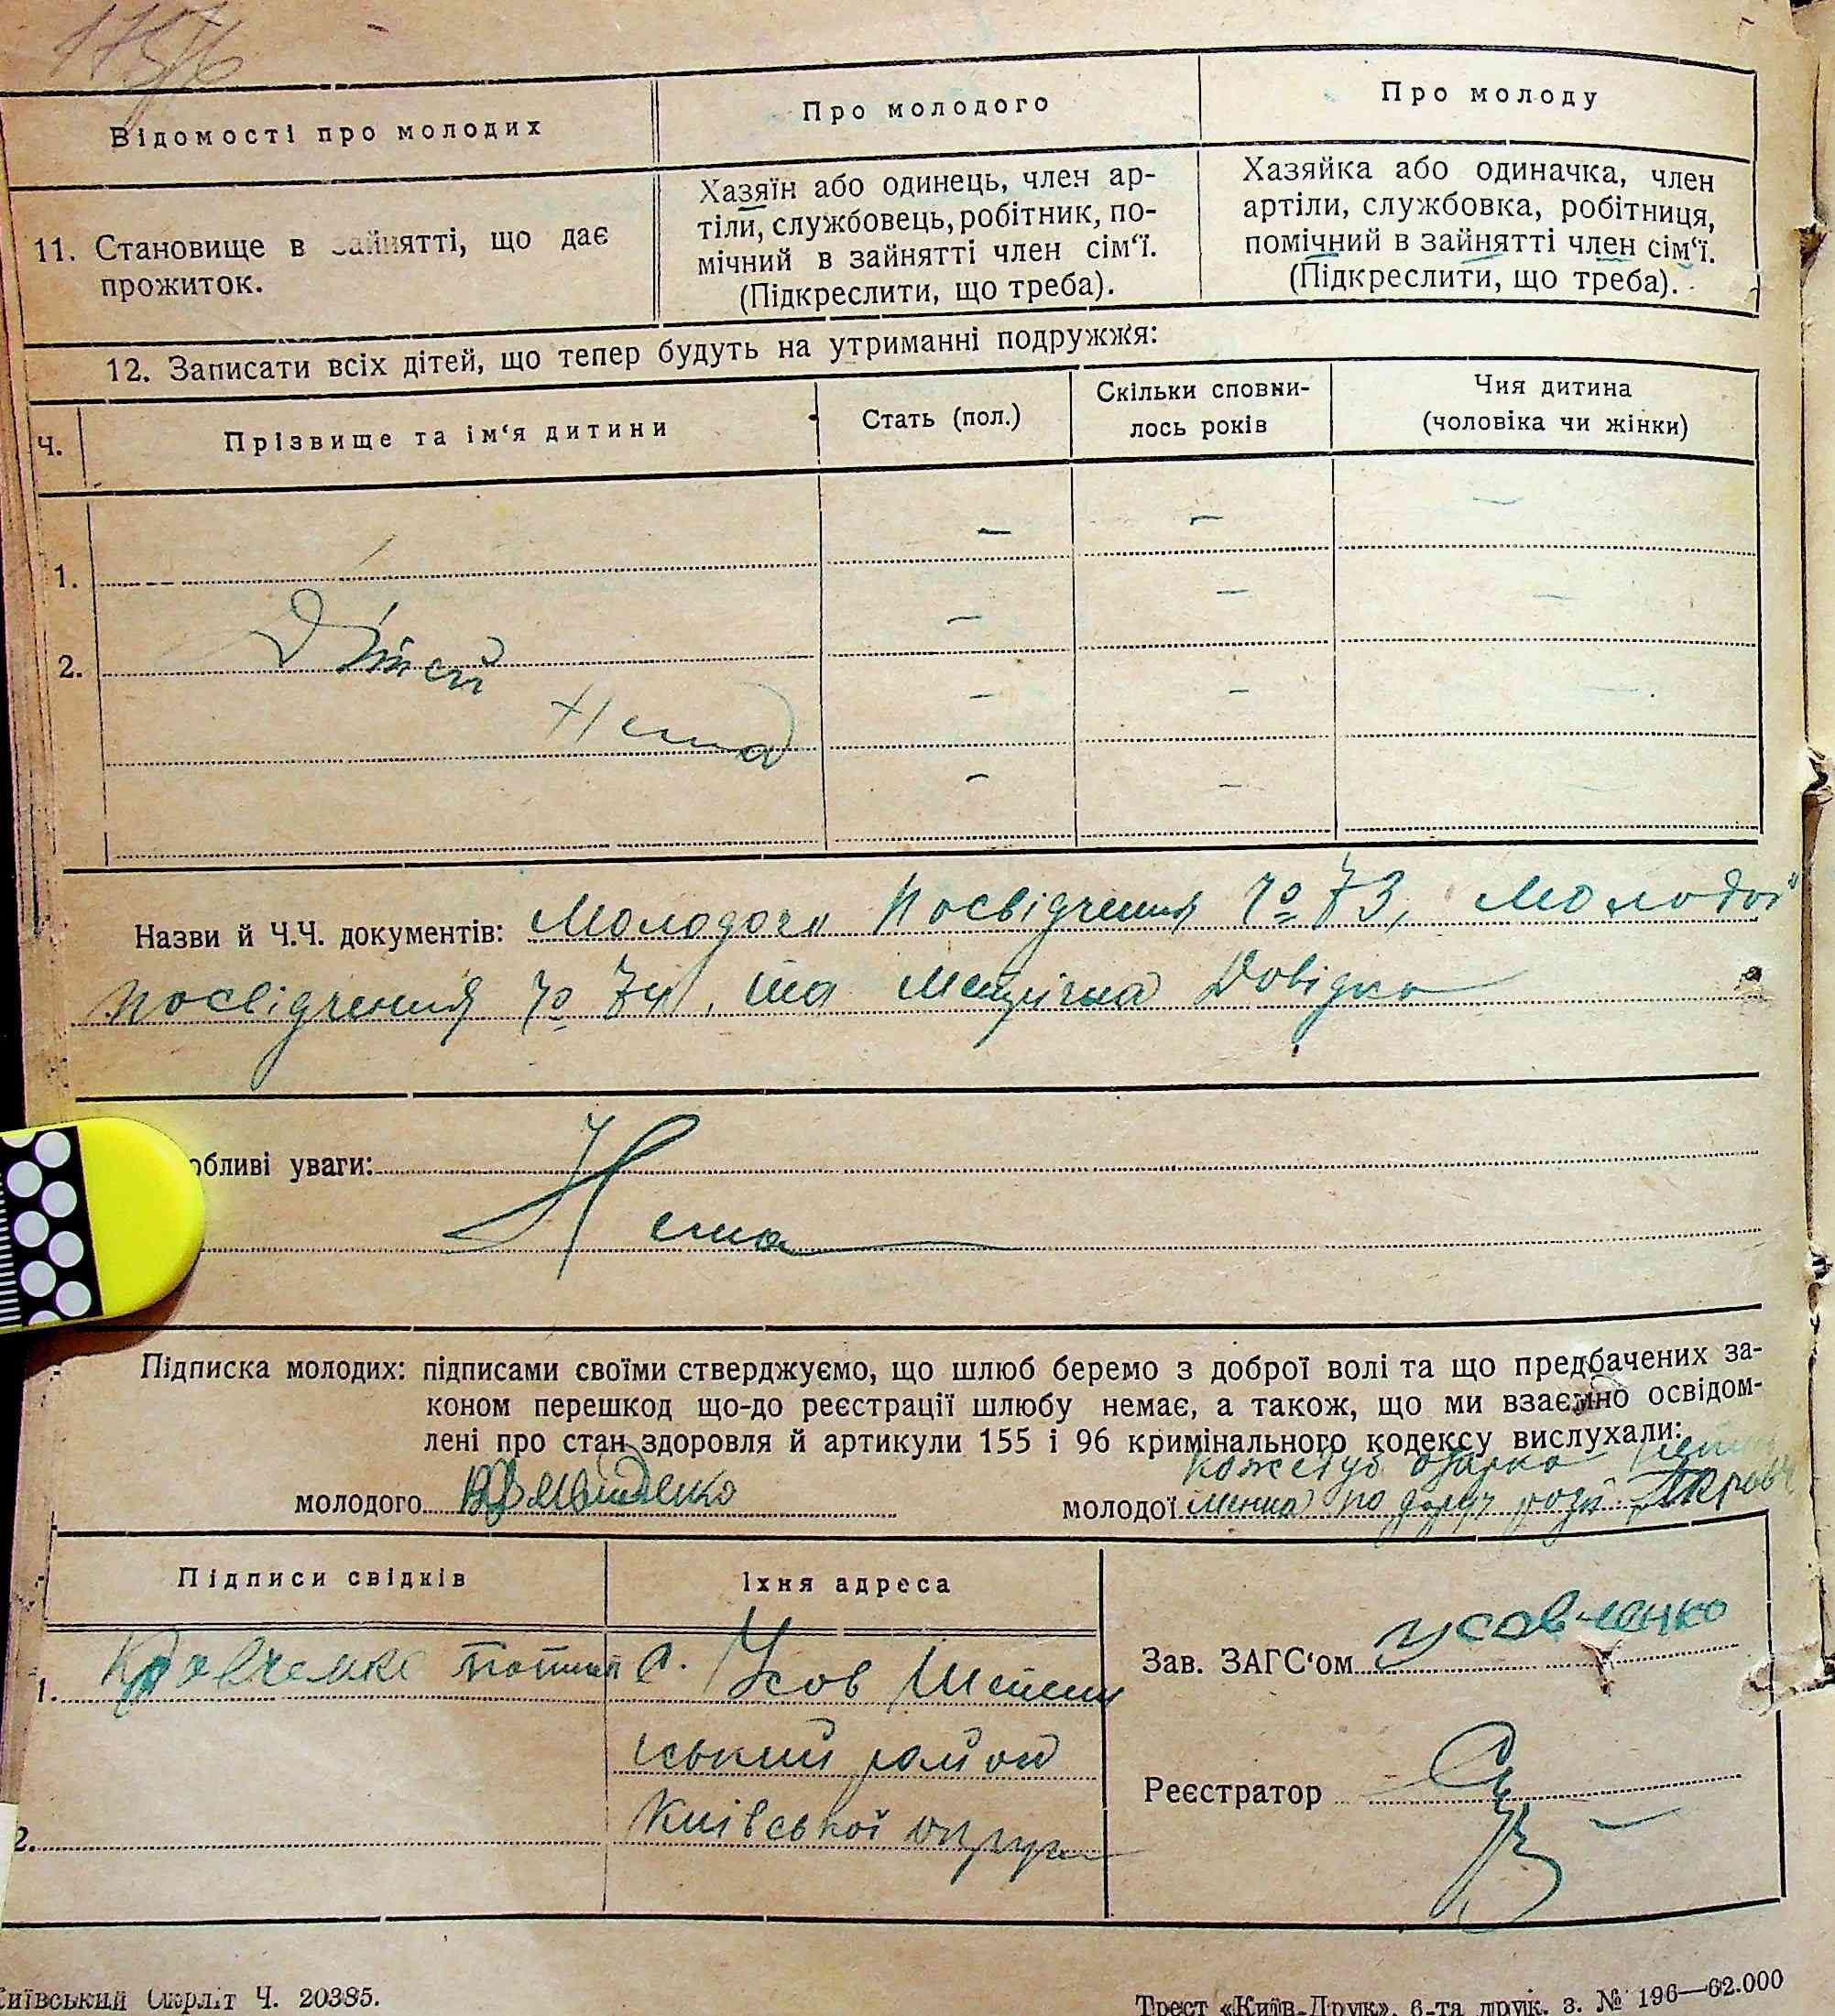 175/6
Відомості про молодих
Про молодого
Про молоду
11. Становище в зайнятті, що дає
прожиток.
Хазяїн або одинець, член ар-
тіли, службовець, робітник, по-
мічний в зайнятті член сім‘ї.
(Підкреслити, що треба).
Хазяйка або одиначка, член
артіли, службовка, робітниця,
помічний в зайнятті член сім‘ї.
(Підкреслити, що треба).
12. Записати всіх дітей, що тепер будуть на утриманні подружжя:
Ч.
Прізвище та ім‘я дитини
Стать (пол.)
Скільки сповни-
лось років
Чия дитина
(чоловіка чи жінки)
1.
2.
Дітей
Нема
Назви й Ч.Ч. документів: Молодого Посвідчення № 73, Молодої
посвідчення № 74, та Метрична Довідка
обливі уваги:
Нема
Підписка молодих: підписами своїми стверджуємо, що шлюб беремо з доброї волі та що предбачених за-
коном перешкод що-до реєстрації шлюбу немає, а також, що ми взаємно освідом-
лені про стан здоровля й артикули 155 і 96 кримінального кодексу вислухали:
молодого
молодої
Підписи свідків
Їхня адреса
1. Кравченко
С. Усов
ський район
Київської округи
2.
Зав. ЗАГС‘ом Усовченко
Реєстратор
Київський Окрліт Ч. 20385.
Трест «Київ-Друк», 6-та друк. з. № 196—62.000